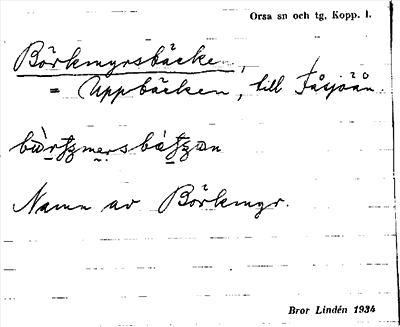 Orsa sn och tg, Kopp. l.
Börkmyrsbäcken,
= Uppbäcken, till Fåsjöån.
Namn av Börkmyr.
Bror Lindén 1934